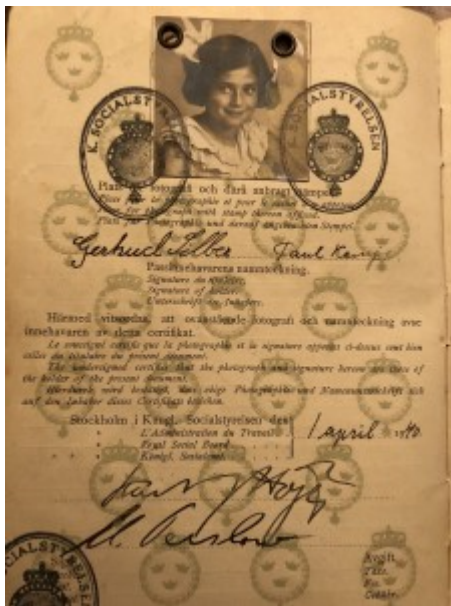 K. SOCIALSTYRELSEN
SOCIALSTYRELSEN
Plats för fotografi och därå anbragt stämpel.
Place pour la photographie et pour le
for photograph with stamp thereon affixed.
Platz für Photographie und darauf angebrachten Stempel.
Gertrud Paul
Passinnehavarens namnteckning.
Signature du titulaire.
Signature of holder.
Unterschrift des Inhabers.
Härmed vitsordas, att ovanstående fotografi och namnteckning avse
innehavaren av detta certifikat.
Le soussigné certifie que la photographie et la signature apposées ci-dessus sont bien
celles du titulaire du présent document.
The undersigned certifies that the photograph and signature hereon are those of
the holder of the present document.
Hierdurch wird bestätigt, dass obige Photographie und Namensunterschrift sich
auf den Inhaber dieses Certifikats beziehen.
Stockholm i Kungl. Socialstyrelsen den 1 april 1940
L'Administration du Travail
Royal Social Board
Königl. Sozialamt
SOCIALSTYRELSEN
Avgift.
Taxe.
Fee.
Gebühr.